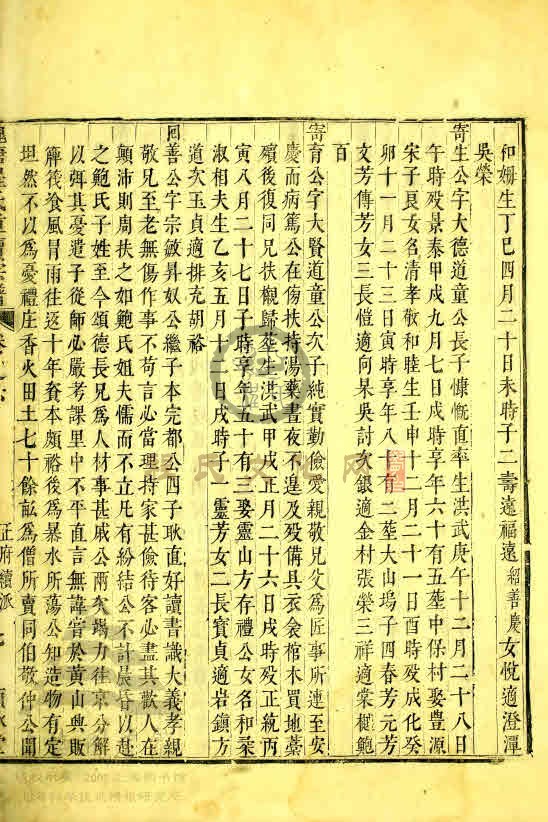 和姍生丁巳四月二十日未時子二壽遠福遠紹善慶女悅適澄潭
吳榮
寄生公字大德道童公長子慷慨直率生洪武庚午十二月二十八日
午時歿景泰甲戌九月七日戌時享年六十有五塟中保村娶豊源
宋子良女名清孝敬和睦生壬申十二月二十一日酉時歿成化癸
卯十一月二十三日寅時享年八十有二塟大山塢子四春芳元芳
文芳傳芳女三長愷適向杲吳討次銀適金村張榮三祥適棠樾鮑
百
寄育公字大賢道童公次子純實勤儉愛親敬兄父爲匠事所連至安
慶而病篤公在傍扶持湯藥晝夜不遑及歿備具衣衾棺木買地藁
殯後復同兄扶櫬歸塟生洪武甲戌正月二十六日戌時歿正統丙
寅八月二十七日子時享年五十有三娶靈山方存禮公女名和柔
淑相夫生乙亥五月十三日戌時子一靈芳女二長寳貞適岩鎮方
道次玉貞適排充胡裕
回善公字宗敏昇奴公繼子本完都公四子耿直好讀書識大義孝親
敬兄至老無傷作事不苟言必當理持家甚儉待客必盡其歡人在
顛沛則周扶之如鮑氏姐夫儒而不立凡有紛結公不計晨昏以赴
之鮑氏子姓至今頌德長兄爲人材事甚戚公兩次竭力往京分解
以舜其憂遣子從師必嚴考課里中不平直言無諱嘗於黃山興販
簰筏飡風冒雨往返十年資本頗裕後爲暴水所蕩公知造物有定
坦然不以爲憂禮庄香火田土七十餘畝爲僧所賣同伯敬仲公聞